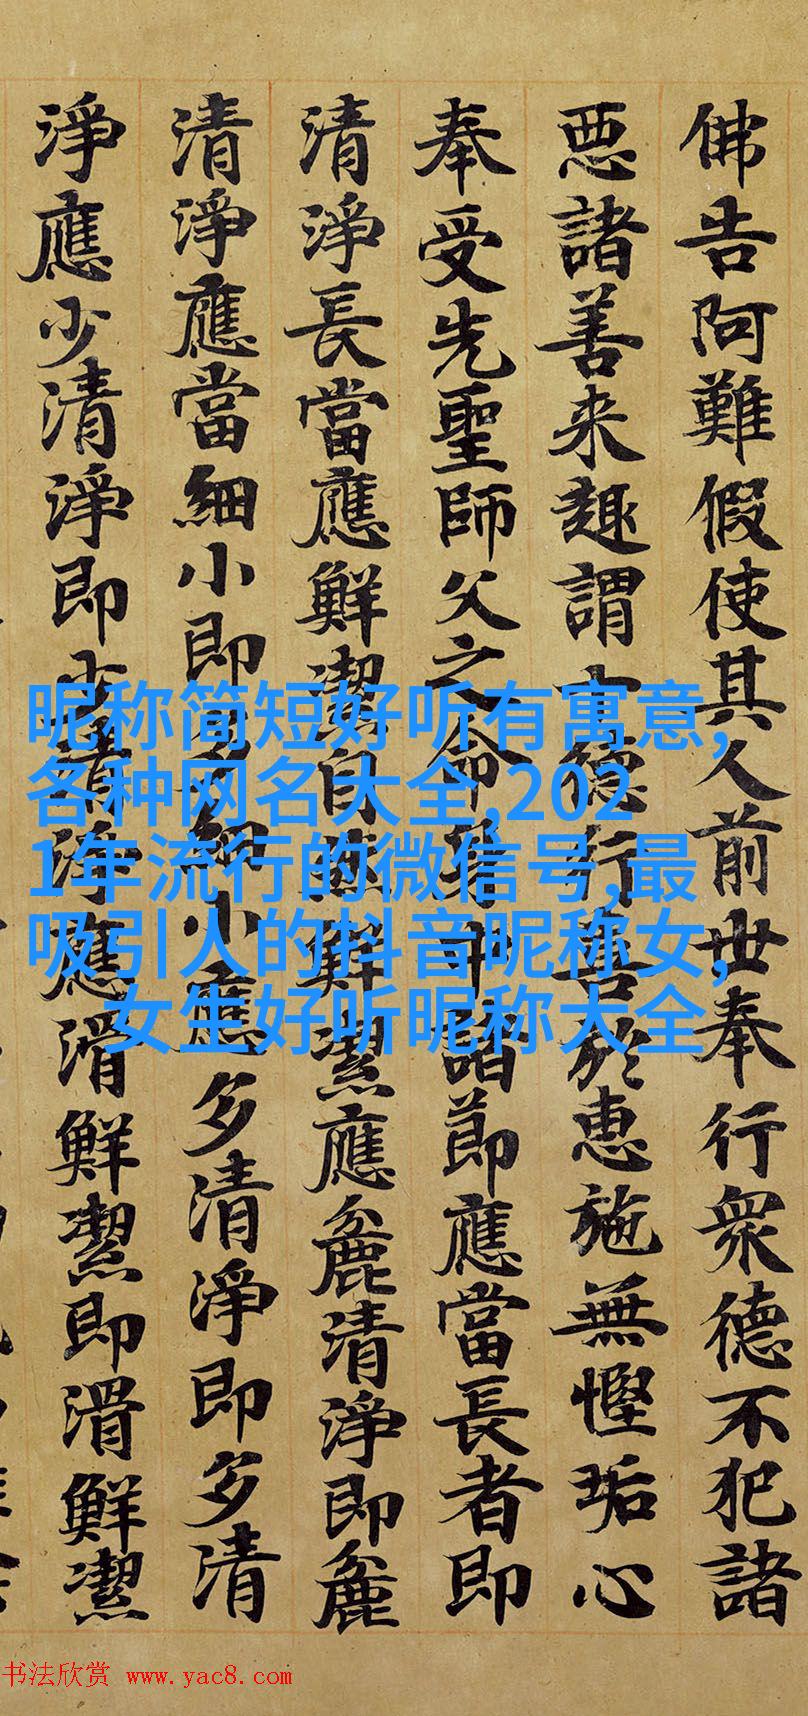 佛告阿難假使其人前世奉行衆德不犯諸
悪諸善来趣謂十德行善於惠施無慳垢心
奉受先聖師父之命中諸節應當長者即
清淨長當應鮮潔自然鮮潔應麁清淨即麁
清淨應當細小即細小應多清淨即多清
淨應少清淨即少清淨應滑鮮潔即滑鮮潔
昵称简短好听有寓意,
各种网名大全,202
1年流行的微信号,最
吸引人的抖音昵称女,
女生好听昵称大全
书法欣赏 www.yac8.com